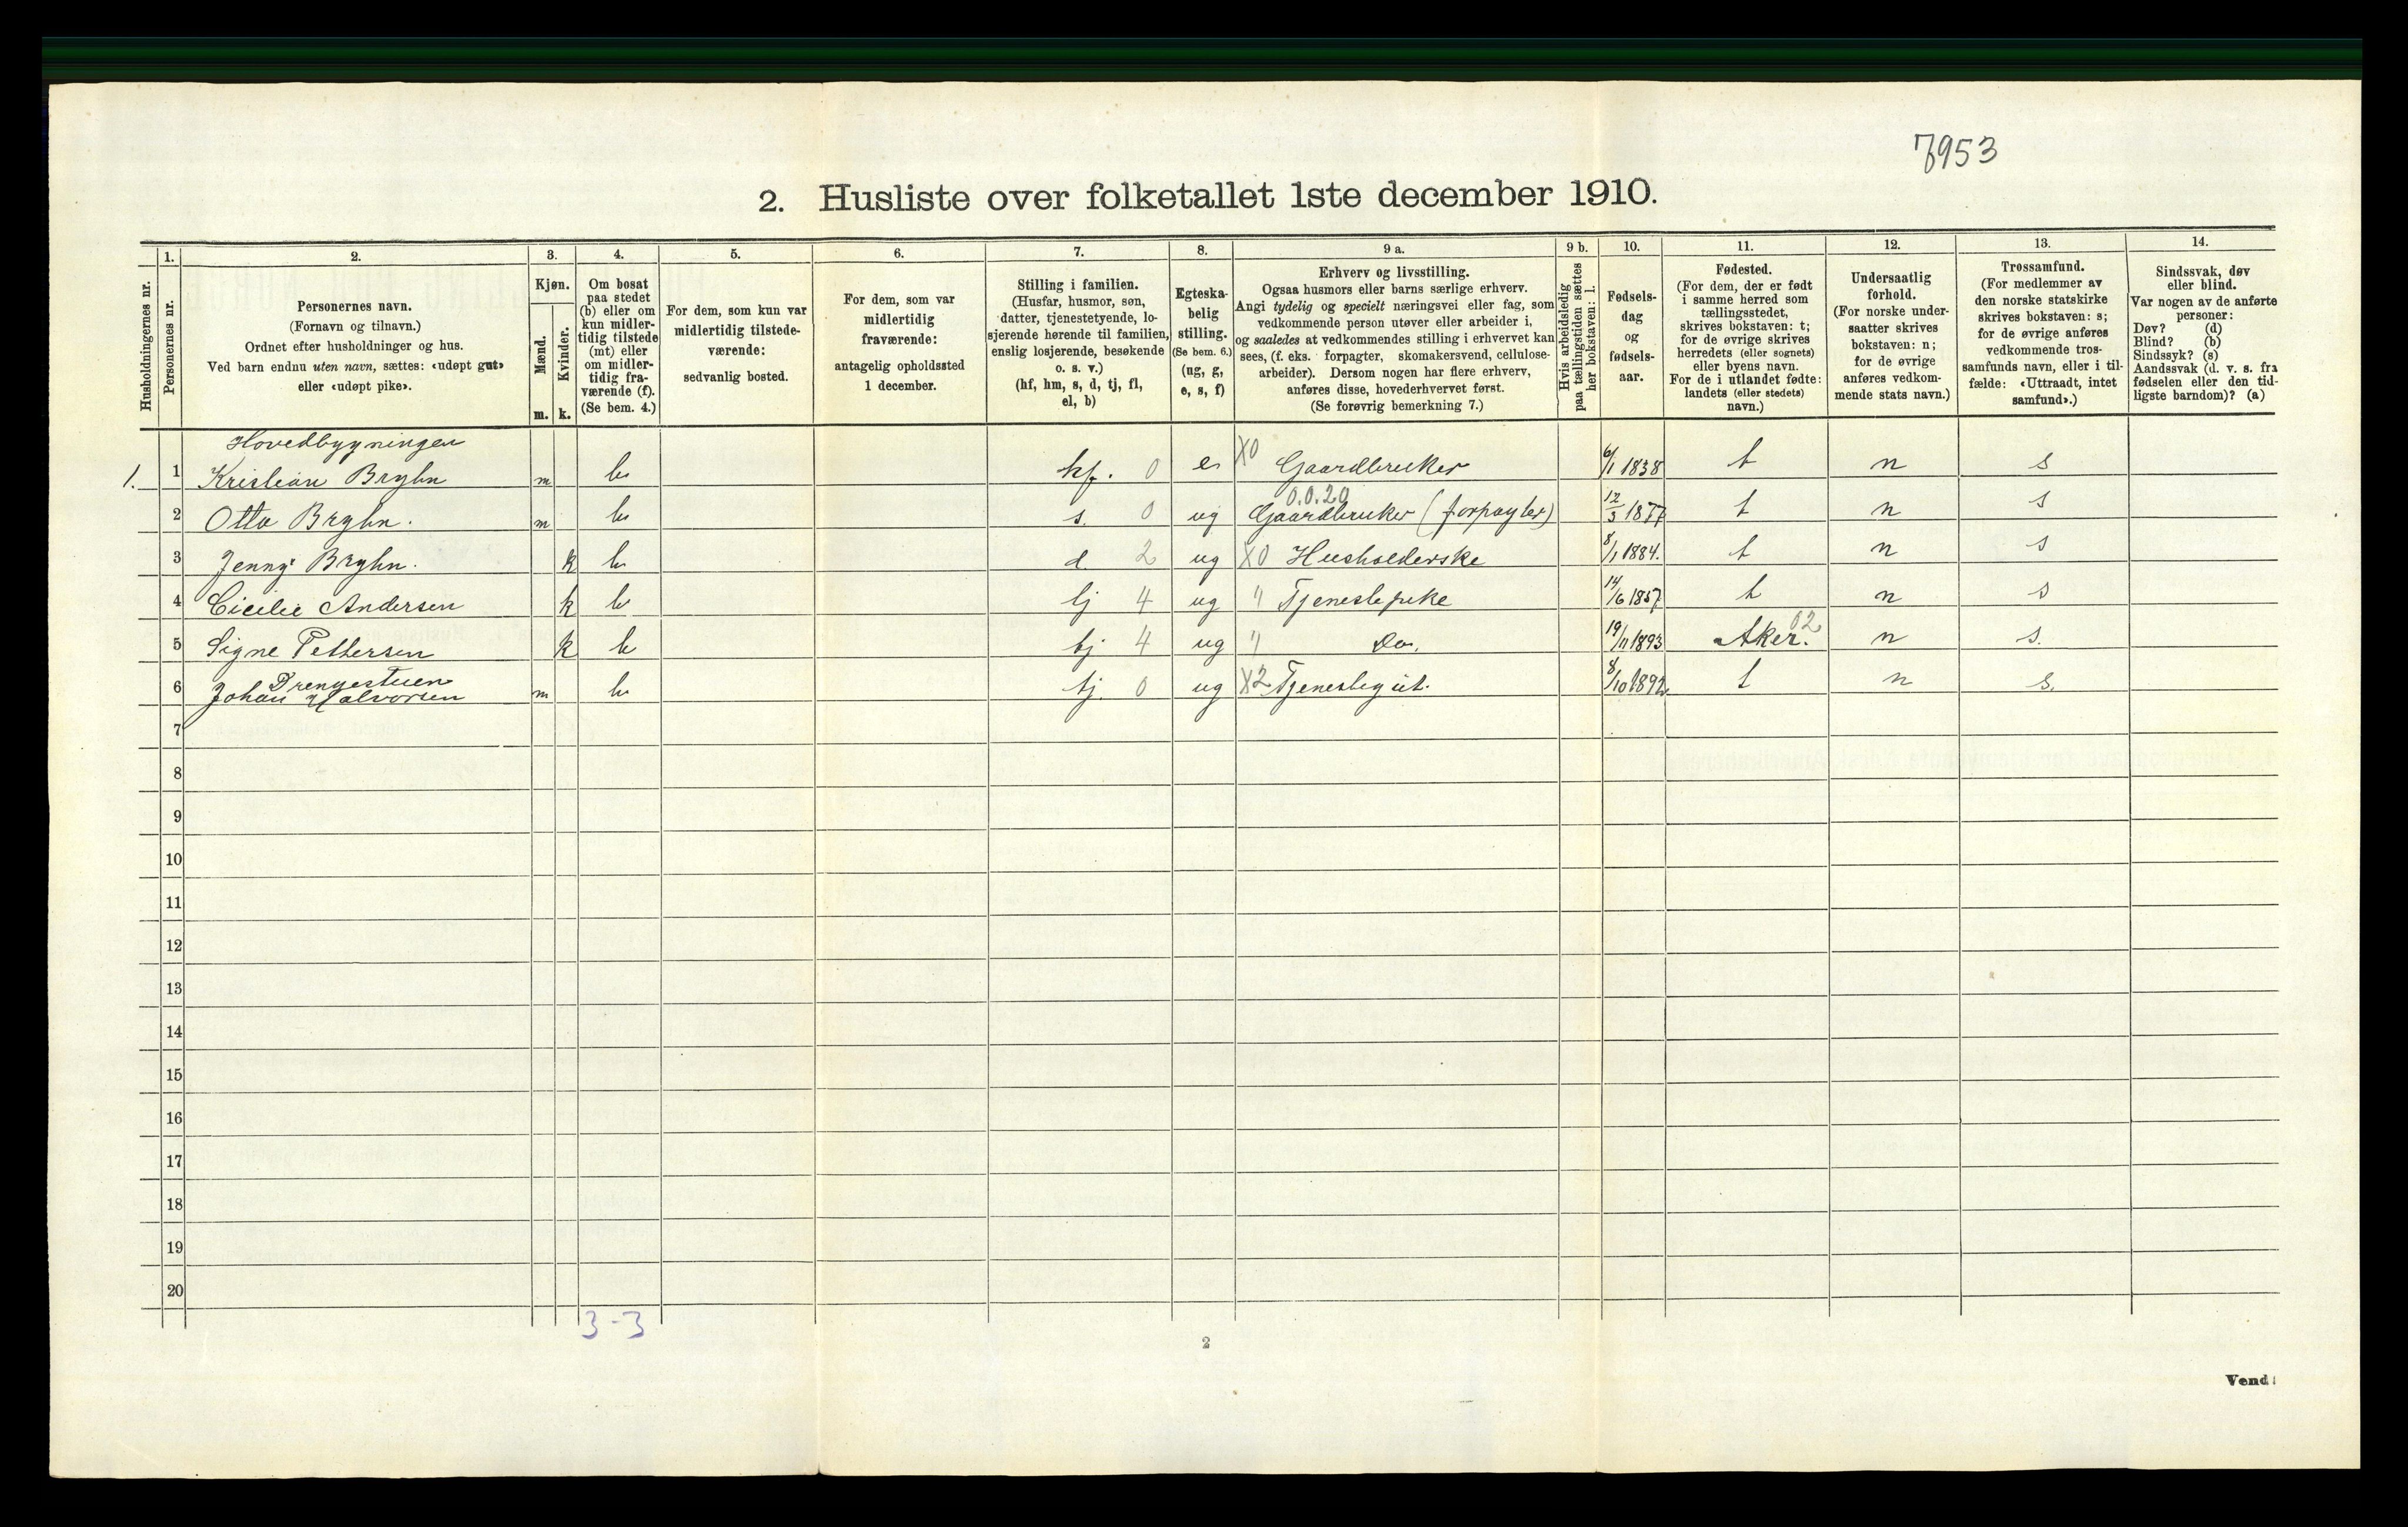 7953
2. Husliste over folketallet 1ste december 1910.
Husholdningernes nr.
1.
Personernes nr.
2.
Personernes navn.
(Fornavn og tilnavn.)
Ordnet efter husholdninger og hus.
Ved barn endnu uten navn, sættes: «udøpt gut»
eller «udøpt pike».
3.
Kjøn.
Mænd.
Kvinder.
m. k.
4.
Om bosat
paa stedet
(b) eller om
kun midler-
tidig tilstede
(mt) eller
om midler-
tidig fra-
værende (f).
(Se bem. 4.)
5.
For dem, som kun var
midlertidig tilstede-
værende:
sedvanlig bosted.
6.
For dem, som var
midlertidig
fraværende:
antagelig opholdssted
1 december.
7.
Stilling i familien.
(Husfar, husmor, søn,
datter, tjenestetyende, lo-
sjerende hørende til familien,
enslig losjerende, besøkende
o. s. v.)
(hf, hm, s, d, tj, fl,
el, b)
8.
Egteska-
belig
stilling.
(Se bem. 6.)
(ug, g,
e, s, f)
9 a.
Erhverv og livsstilling.
Ogsaa husmors eller barns særlige erhverv.
Angi tydelig og specielt næringsvei eller fag, som
vedkommende person utøver eller arbeider i,
og saaledes at vedkommendes stilling i erhvervet kan
sees, (f. eks. forpagter, skomakersvend, cellulose-
arbeider). Dersom nogen har flere erhverv,
anføres disse, hovederhvervet først.
(Se forøvrig bemerkning 7.)
9 b.
Hvis arbeidsledig
paa tællingstiden sættes
her bokstaven: l.
10.
Fødsels-
dag
og
fødsels-
aar.
11.
Fødested.
(For dem, der er født
i samme herred som
tællingsstedet,
skrives bokstaven: t;
for de øvrige skrives
herredets (eller sognets)
eller byens navn.
For de i utlandet fødte:
landets (eller stedets)
navn.)
12.
Undersaatlig
forhold.
(For norske under-
saatter skrives
bokstaven: n;
for de øvrige
anføres vedkom-
mende stats navn.)
13.
Trossamfund.
(For medlemmer av
den norske statskirke
skrives bokstaven: s;
for de øvrige anføres
vedkommende tros-
samfunds navn, eller i til-
fælde: «Uttraadt, intet
samfund».)
14.
Sindssvak, døv
eller blind.
Var nogen av de anførte
personer:
Døv? (d)
Blind? (b)
Sindssyk? (s)
Aandssvak (d. v. s. fra
fødselen eller den tid-
ligste barndom)? (a)
Hovedbygningen
1. 1 Kristian Bryhn m b hf. 0 e X0 Gaardbruker 6/1 1838 t n s
0.0.20
2 Otto Bryhn. m b s. 0 ug Gaardbruker (forpagter) 12/3 1877 t n s
3 Jenny Bryhn. k b d 2 ug X0 Husholderske 8/1 1884. t n s
4 Cicilie Andersen k b tj 4 ug " Tjenestepike 14/6 1857 t n s
02
5 Signe Pettersen k b tj 4 ug " Do. 19/11 1893 Aker. n s.
Drengestuen
6 Johan Halvorsen m b tj. 0 ug X2 Tjenestegut. 8/10 1892 t n s.
7
8
9
10
11
12
13
14
15
16
17
18
19
20
3-3
2
Vend!